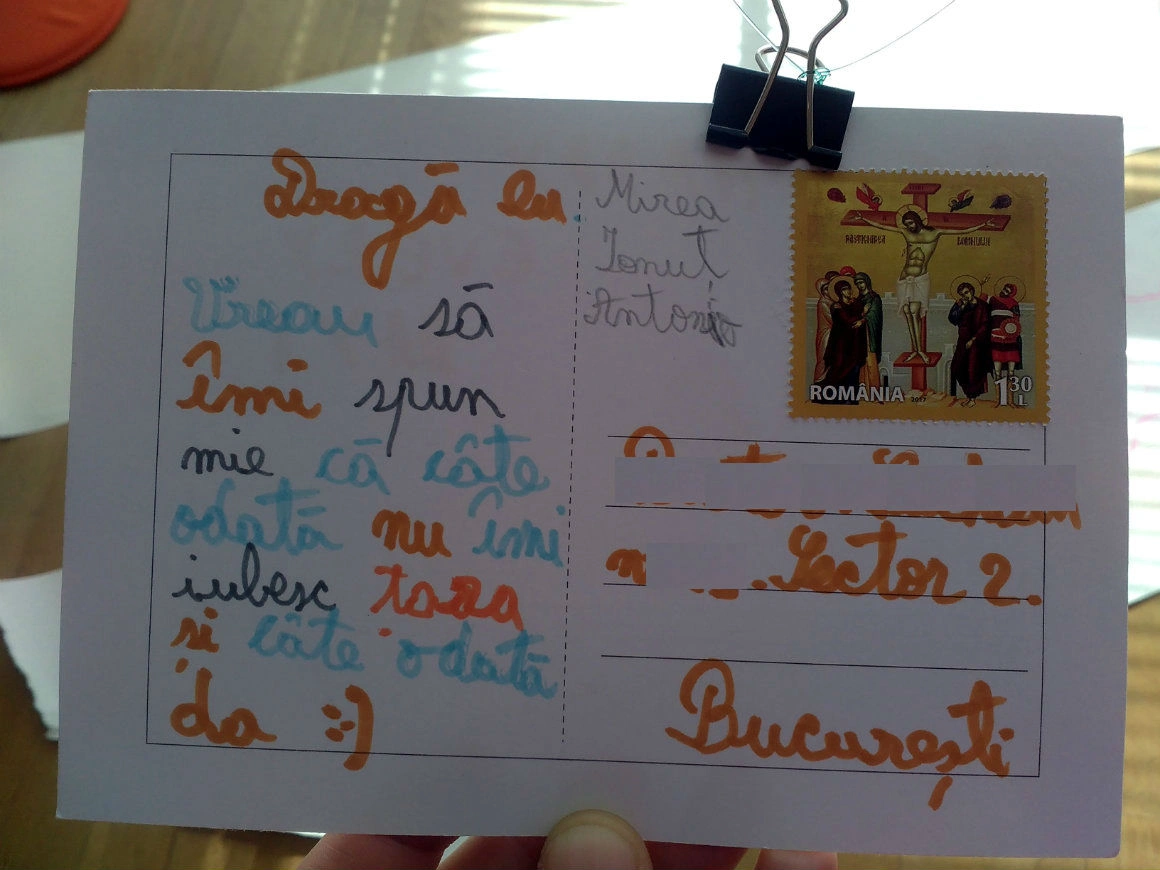 Dragă eu.
Vreau să
îmi spun
mie că câte
odată nu îmi
iubesc
și câte odată
da :-)
Mirea
Ionuț
Antonio
RĂSTIGNIREA DOMNULUI
ROMÂNIA 2017 1 30 L
Sector 2.
București